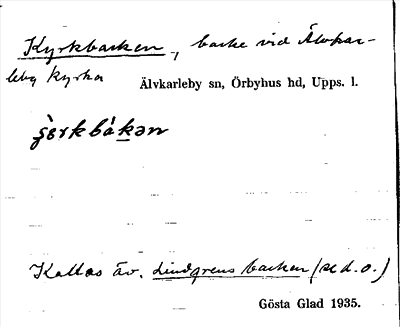 Kyrkbacken, backe vid Älvkar-
leby kyrka
Älvkarleby sn, Örbyhus hd, Upps. l.
Kallas äv. Lindgrens backen (se d. o.)
Gösta Glad 1935.